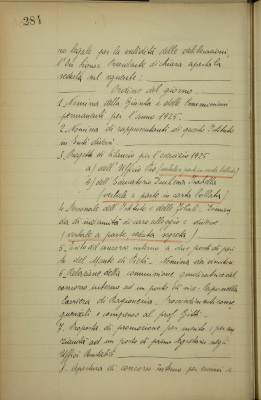 284
no legale per la validità delle deliberazioni,
l'On. Signor Presidente dichiara aperta la
seduta sul seguente:
Ordine del giorno.
1. Nomina della Giunta e delle Commissioni
permanenti per l'anno 1925.
2. Nomina di rappresentanti di questo Istituto
in Enti diversi.
3. Progetti di bilancio per l'esercizio 1925
a) dell'Ufficio Pio (verbale a parte in carta bollata)
b) dell'Educatorio Duchessa Isabella
(verbale a parte in carta bollata)
4. Personale dell'Istituto e delle
di indennità di caro alloggio e
(verbale a parte seduta segreta)
5. Esito del concorso interno a due posti di
del Monte di Pietà. Nomina dei vincitori.
6. Relazione della commissione giudicatrice del
concorso interno ad un posto di vice-Capo nella
carriera di Ragioneria. Provvedimenti conse-
guenziali e compenso al prof.
7. Proposta di promozione per merito e per an-
zianità ad un posto di primo Segretario negli
Uffici
8. Apertura di concorso interno per esami a